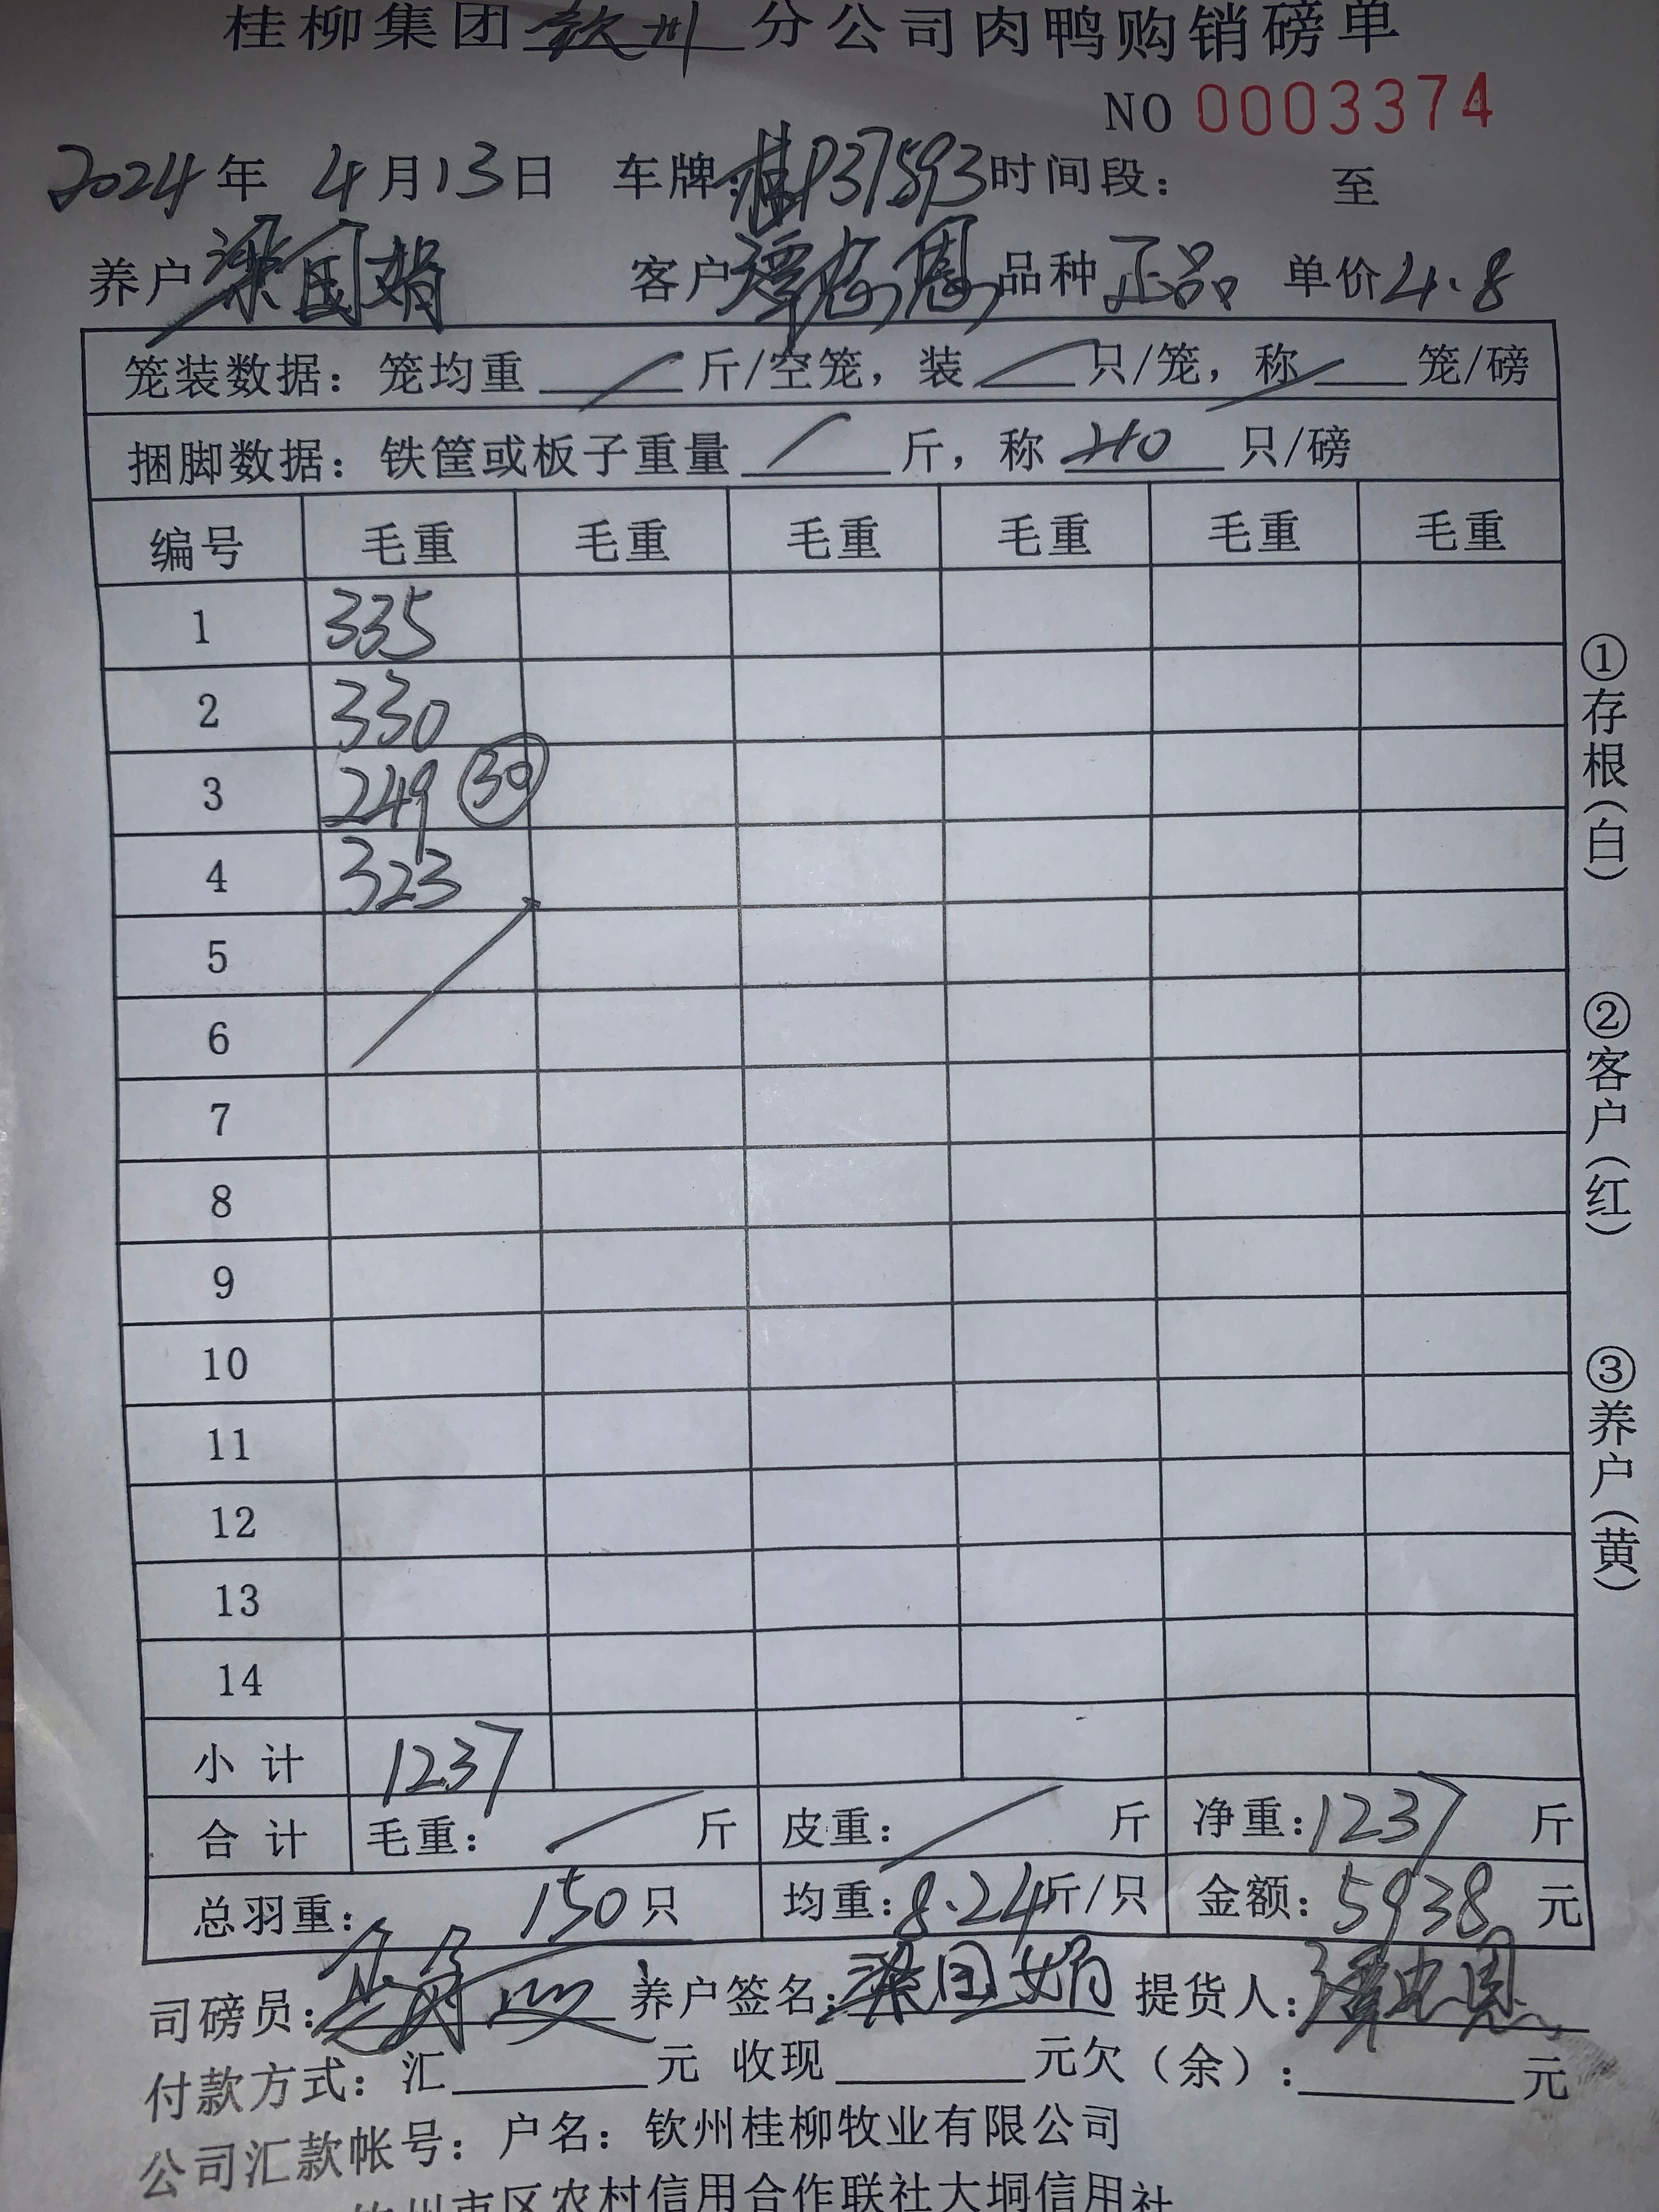 桂柳集团钦州分公司肉鸭购销磅单
NO 0003374
2024年 4月13日 车牌:桂P37593时间段: 至
养户梁国娟 客户谭忠恩 品种正品 单价4.8
笼装数据: 笼均重 斤/空笼, 装 只/笼, 称 笼/磅
捆脚数据: 铁筐或板子重量 斤, 称 只/磅
编号 毛重 毛重 毛重 毛重 毛重 毛重
1 335
2 330
3 249 30
4 323
5
6
7
8
9
10
11
12
13
14
小计 1237
合计 毛重: 斤 皮重: 斤 净重:1237斤
总羽重: 150只 均重:8.24斤/只 金额:5938元
司磅员: 养户签名:梁国娟 提货人:谭忠恩
付款方式: 汇 元 收现 元欠(余): 元
公司汇款帐号: 户名: 钦州桂柳牧业有限公司
钦州市区农村信用合作联社大垌信用社
①存根(白)
②客户(红)
③养户(黄)